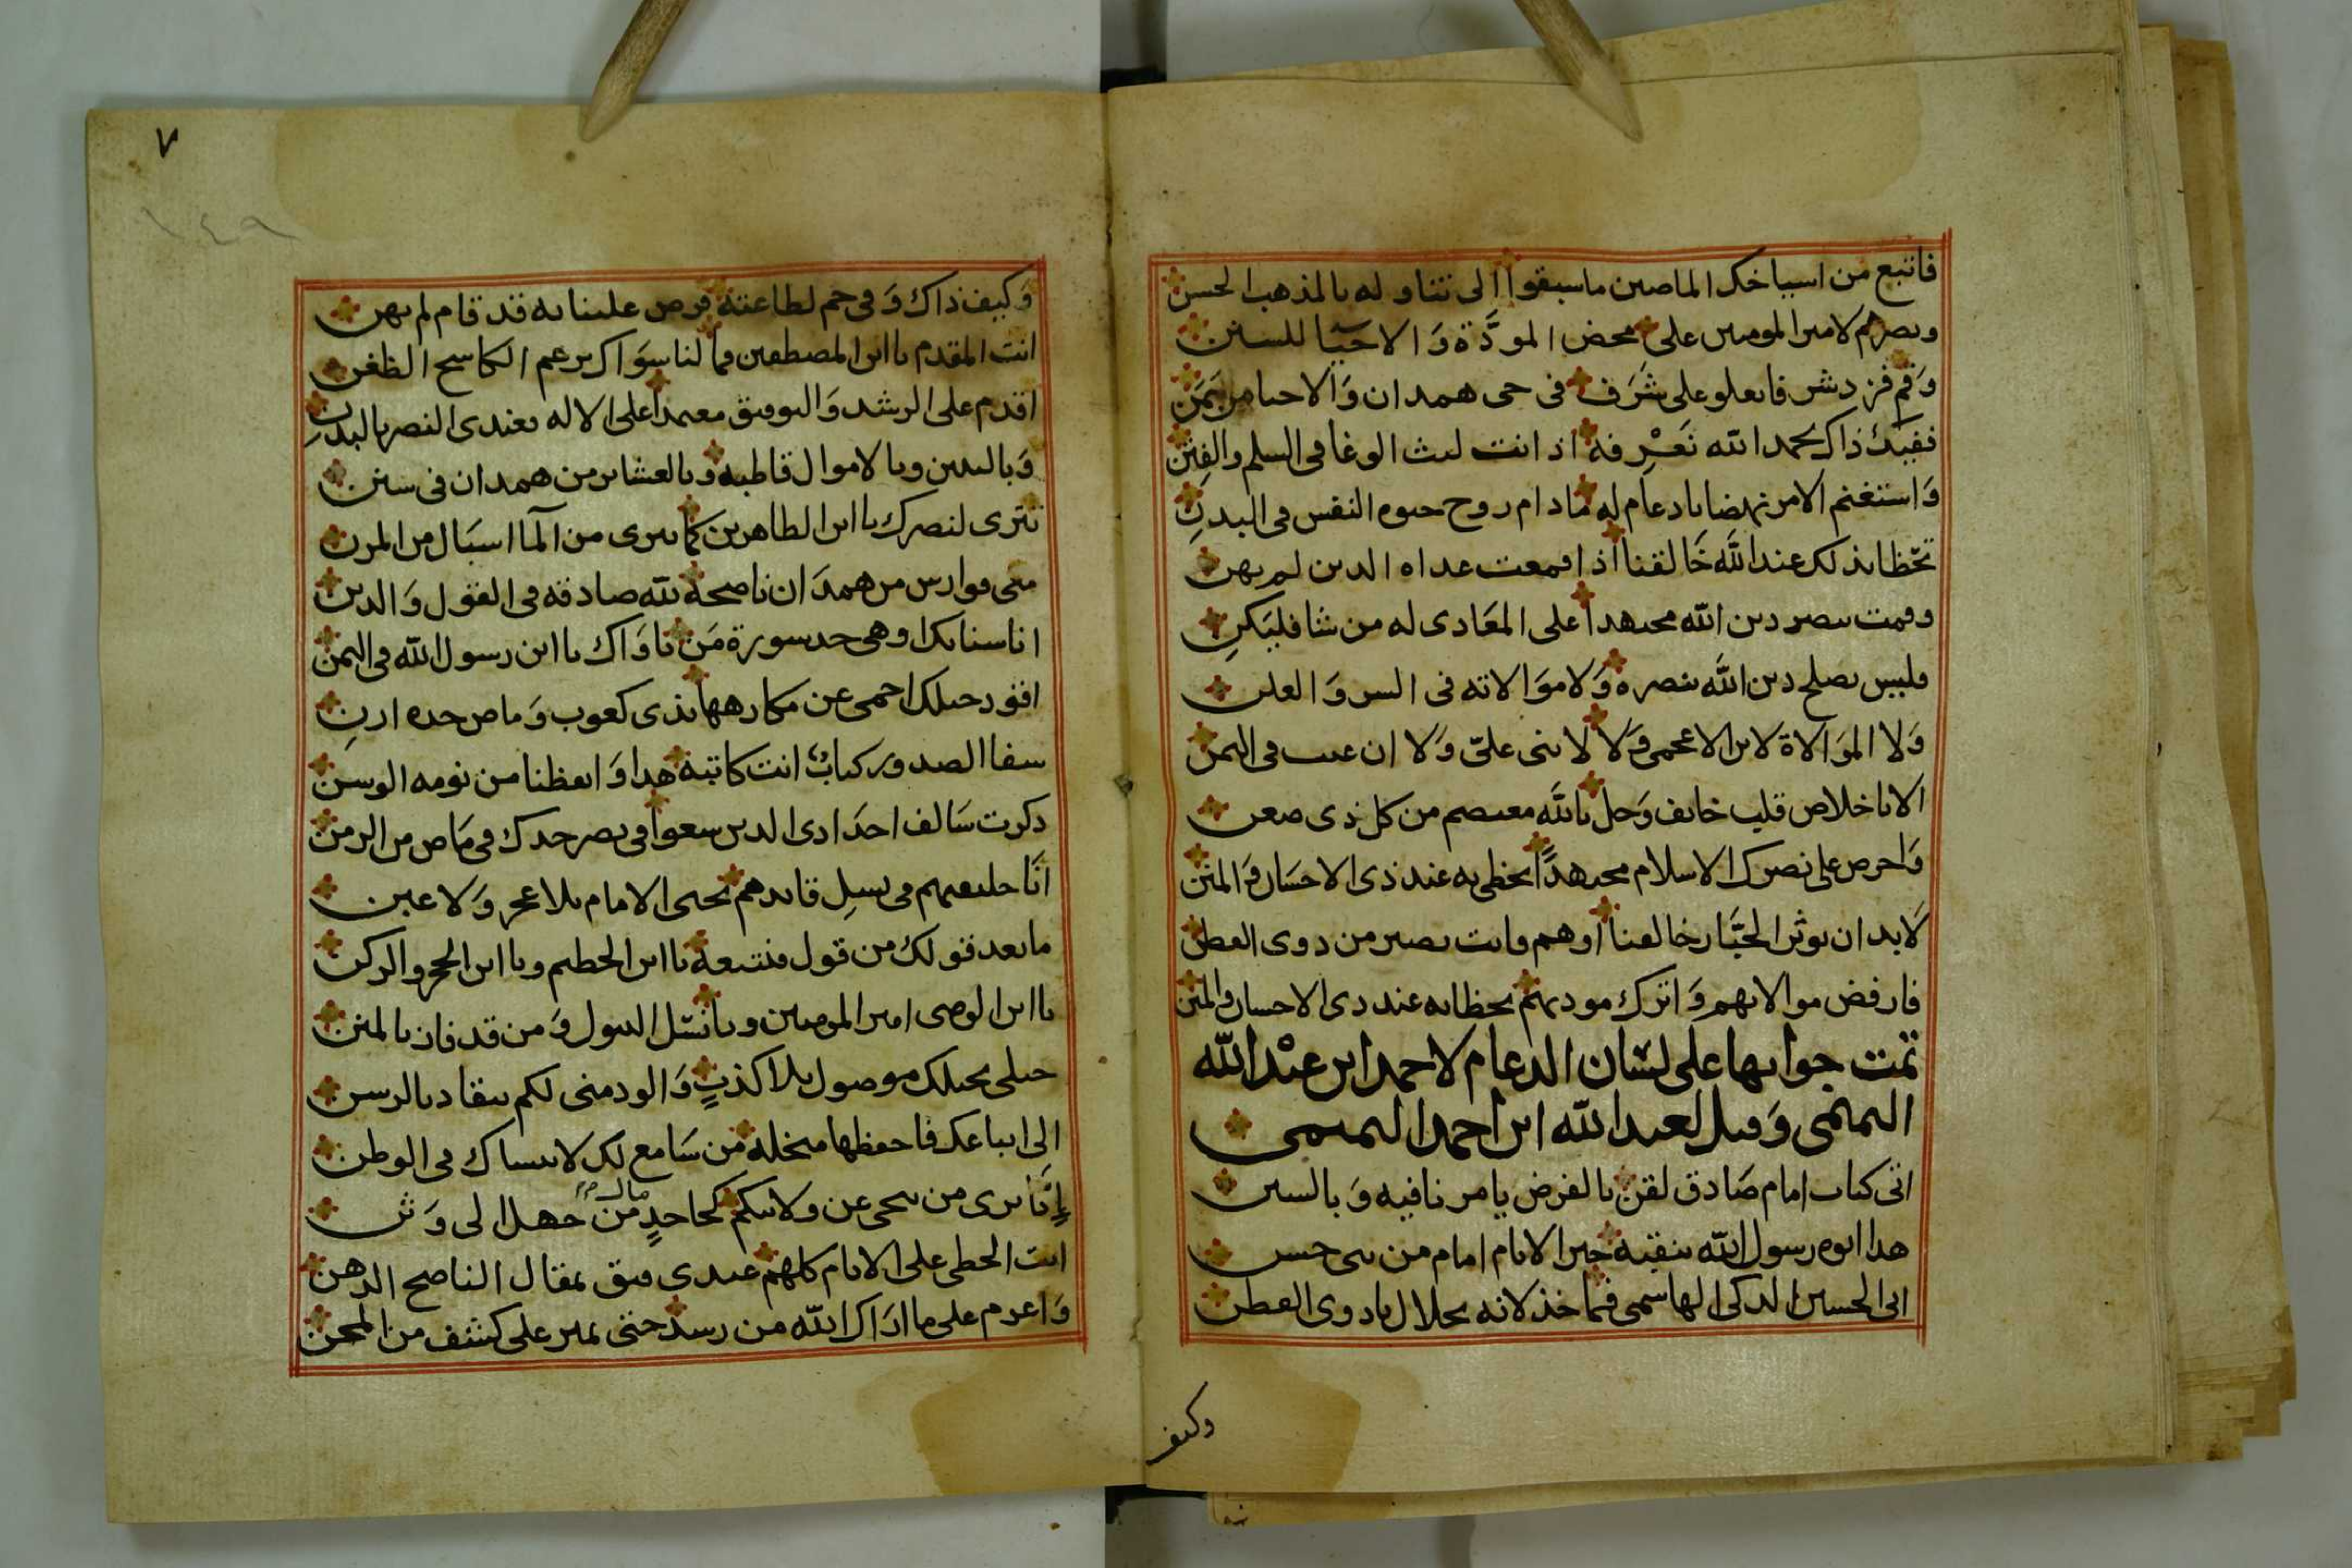 فاتبع من اسياخك الماصين ماسبقوا الى تناوله بالمذهب الحسن
ونصرهم لامير المومنين على محض المودَّة وَالاحيَا للسنن
وَقم فزد شرفا يعلو على شَرَف فى حى همدان وَالاحيا من يَمَن
ففيكَ ذاك بحمد الله نَعْرفه اذ انت ليث الوغا فى السلم والفِتَن
وَاستغنم الامر نهضا يا دعام له مادام روح حيوه النفس فى البدنِ
تحظا بذلك عند اللَّه خَالقنا اذا قمعت عداه الدين لم يهن
وقمت بنصر دين الله مجتهدا على المعَادى له من شا فليَكنِ
فليس يصلح دين اللَّه بنصره وَلا موَالاته فى السر وَالعلن
وَلا الموَالاة لابن الاعجمى وَلا لابنى علىّ وَلا ان عبت فى اليمن
الا باخلاص قلب خايف وَجل باللَّه معتصم من كل ذى صعن
وَاحرص على نصرك الاسلام مجتهدًا تحظى به عند ذى الاحسَان وَالمنن
لَابد ان يوثر الجبَّار خالقنا اوهم وانت بصير من ذوى الفطن
فارفض موالاتهم وَاترك مودتهم تحظا به عند دى الاحسان والمنن
تمت جوابها على لسَان الدعام لاحمد ابن عبْد الله
التميمى وَقيل لعبد الله ابن احمد التميمى
اتى كتاب امام صَادق لقن بالفرض يامرنا فيه وَبالسنن
هدا ابوه رسول الله ينقبه خير الانام امام من بنى حسن
ابى الحسين الدكى الهاشمى فما خذلانه بحلال يا ذوى الفطن
وكيف
٧
١٤٩
وَكيف ذاك وَفى حم لطاعته فرض علينا به قد قام لم يهن
انت المقدم يا ابن المصطفين وما لنا سوَاك برغم الكاسح الظغن
اقدم على الرشد وَالتوفيق معتمدا على الاله فعندى النصر بالبدنِ
وَبالبنين وبالاموال قاطبه وبالعشاير من همدان فى سنن
تترى لنصرك يا ابن الطاهرين كما يترى من المآ اسبَال من المزن
معى فوارس من همدَان ناصحة للّه صادقه فى القول وَالدين
انا سنابكدا وهى حد سورة مَن ناوَاك يا ابن رسول الله فى اليمن
اقود حيلك احمى عن مكارهها بذى كعوب وَماض حده ارنِ
سفا الصدور كتابٌ انت كاتبه هدا وَايقظنا من نومه الوسن
دكرت سَالف اجدَادى الدين سعوا فى نصر جدك فى مَاض من الزمن
انَا خليفتهم فى نسلِ قايدهم يحيى الامام بلا عجز وَلا غبن
مابعد قولك من قول فنتبعه يا ابن الحطيم ويا ابن الحجر والركن
يا ابن الوصى امير المومنين ويا نسْل البتول وَمن قد فاز بالمنن
حبلى بحبلك موصول بلا كذبٍ وَالود منى لكم ينقاد بالرسن
الى اتباعك فاحفظها منخله من سَامع لك لاينساك فى الوطن
إِنَّا نرى من تنحى عن ولايتكم كجاحدٍ من جهل الى وَثن
مال
انت الحظى على الانام كلهم عندى فثق بمقال الناصح الذهن
وَاعزم على ما ارَاك الله من رسد حتى نمير على كشف من المحن